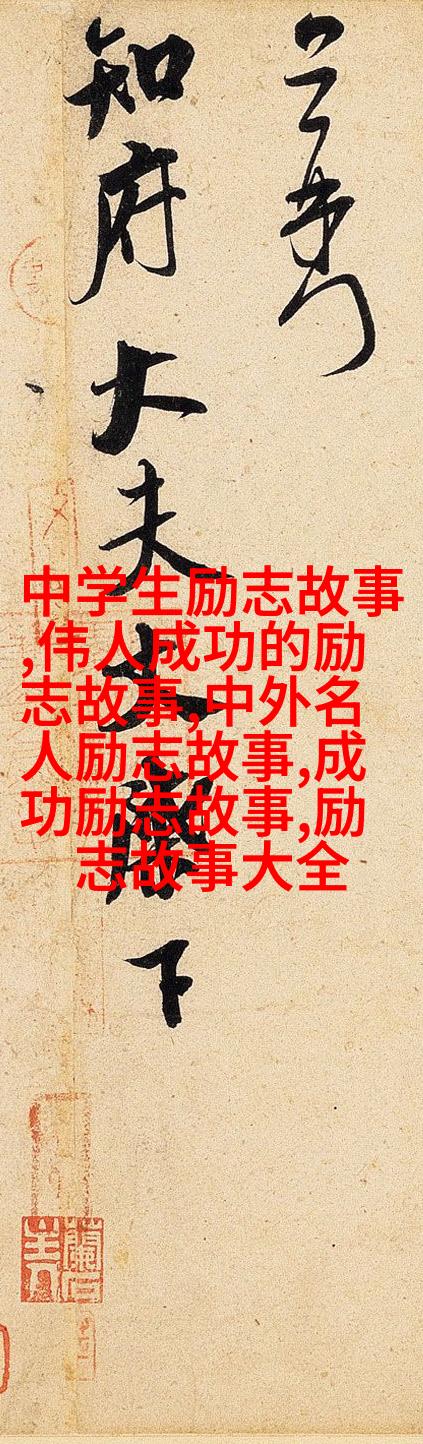 知府大夫丈
下
中学生励志故事
,伟人成功的励
志故事,中外名
人励志故事,成
功励志故事,励
志故事大全